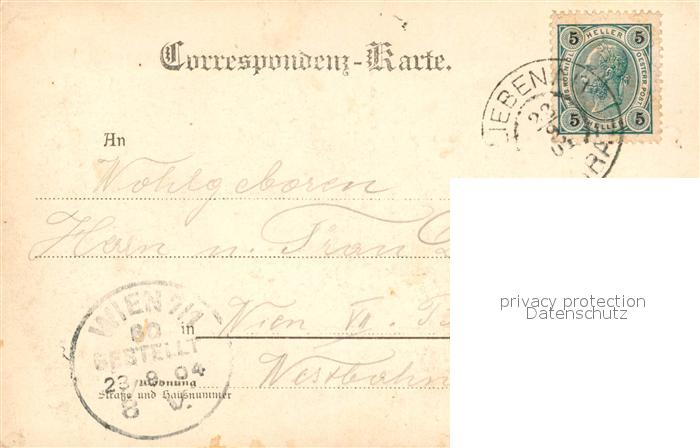 Correspondenz-Karte.
5 HELLER 5
5 HELLER 5
LIEBENAU
An
Wohlgeboren
Herrn u. Frau
privacy protection
Datenschutz
WIEN 7/1
in
Wien VII.
BESTELLT
Westbahn
23.8.04
Straße und Hausnummer
8 V.